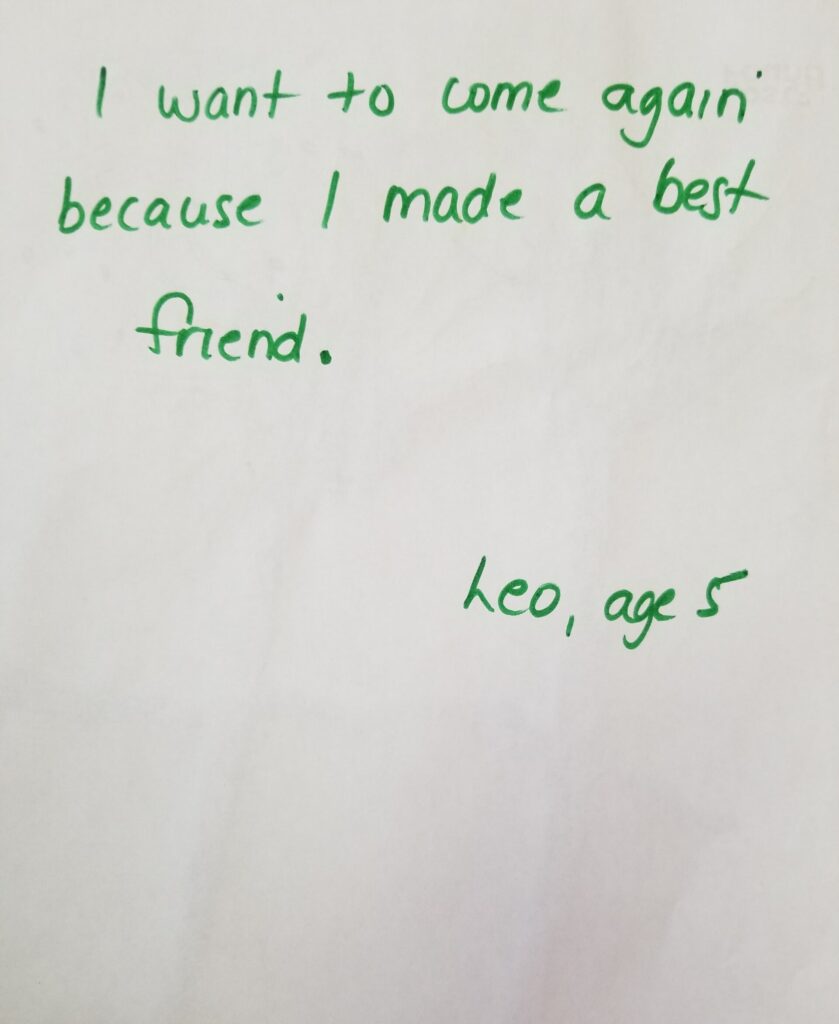 I want to come again
because I made a best
friend.
Leo, age 5